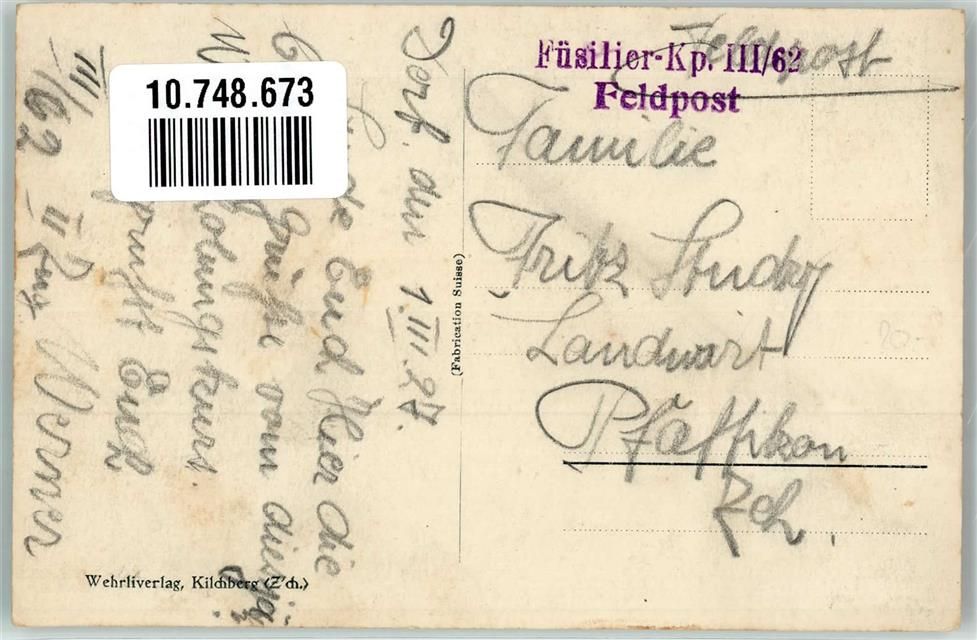 Feldpost
Füsilier-Kp. III/62
Feldpost
Familie
Fritz Studky
Landwirt
Pfäffikon
Zch.
Dorf. den 1.III.27.
Euch Hier die
Grüße vom diesj.
kurs.
Euch
Werner
III/62 II Zug
(Fabrication Suisse)
Wehrliverlag, Kilchberg (Z'ch.)
10.748.673